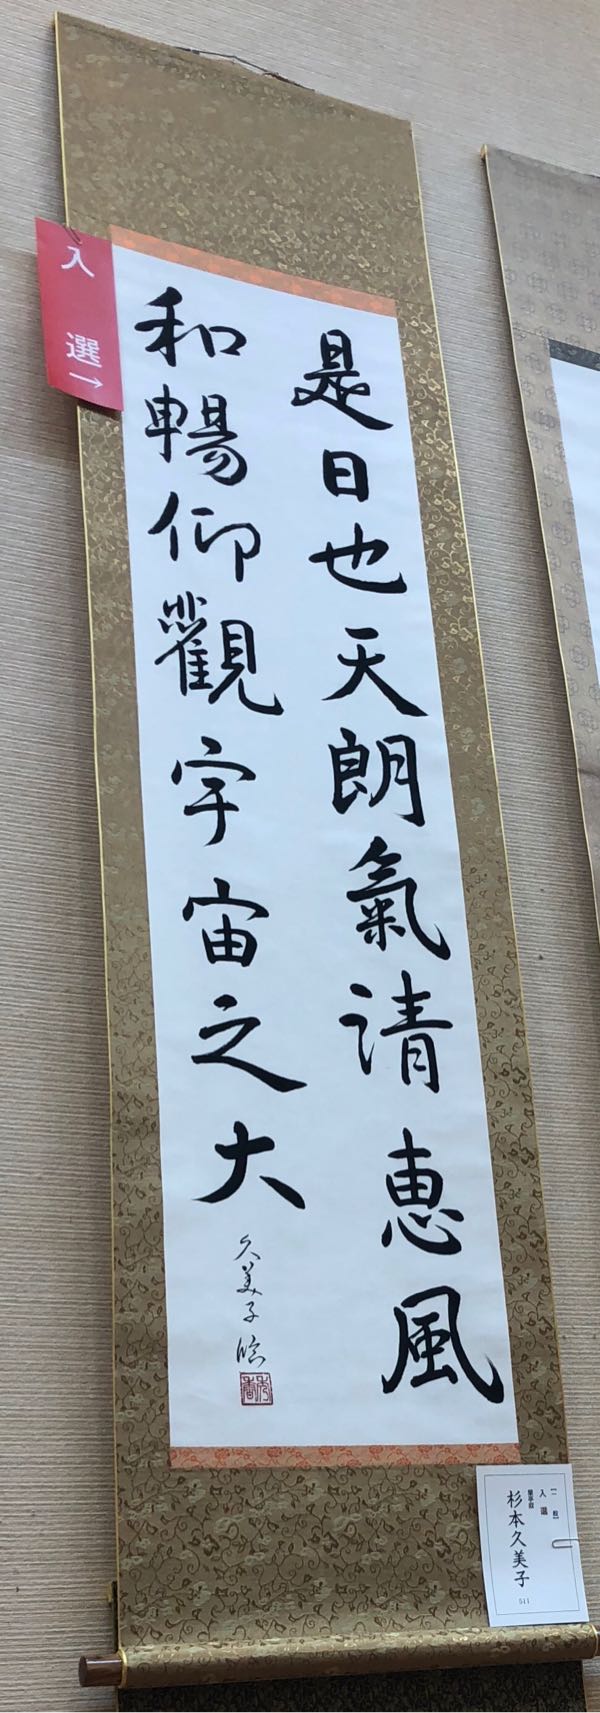 是日也天朗氣請恵風
和暢仰觀宇宙之大
久美子臨
入選→
【一般】
入選
蘭亭叙
杉本久美子
511